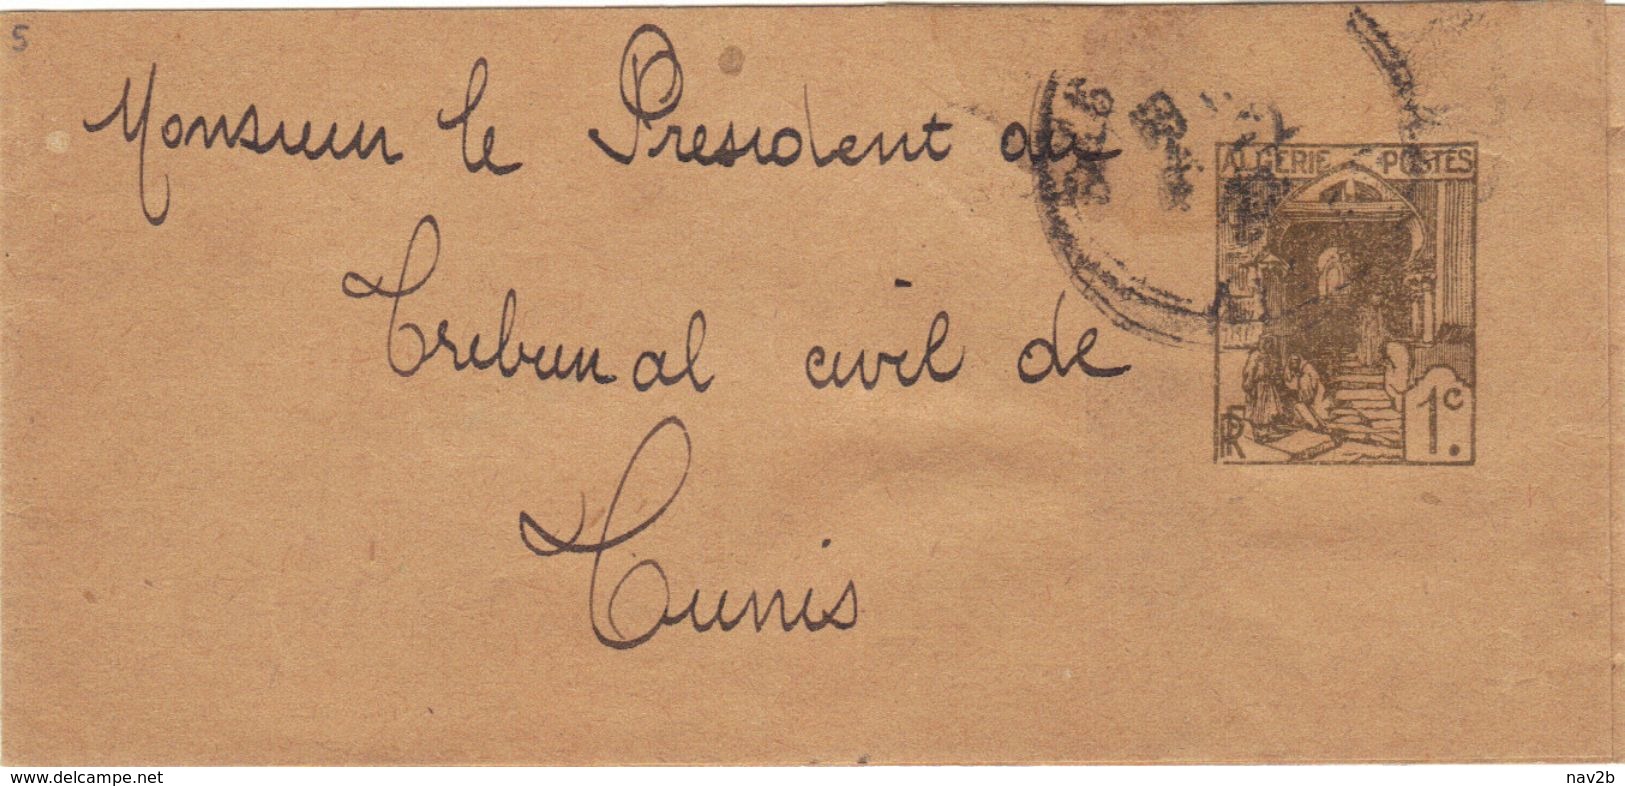 5
Monsieur le President du
Tribunal civil de
Tunis
ALGERIE POSTES
RF
1c.
www.delcampe.net
nav2b